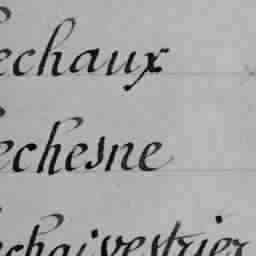 echaux
echesne
echaivestrier